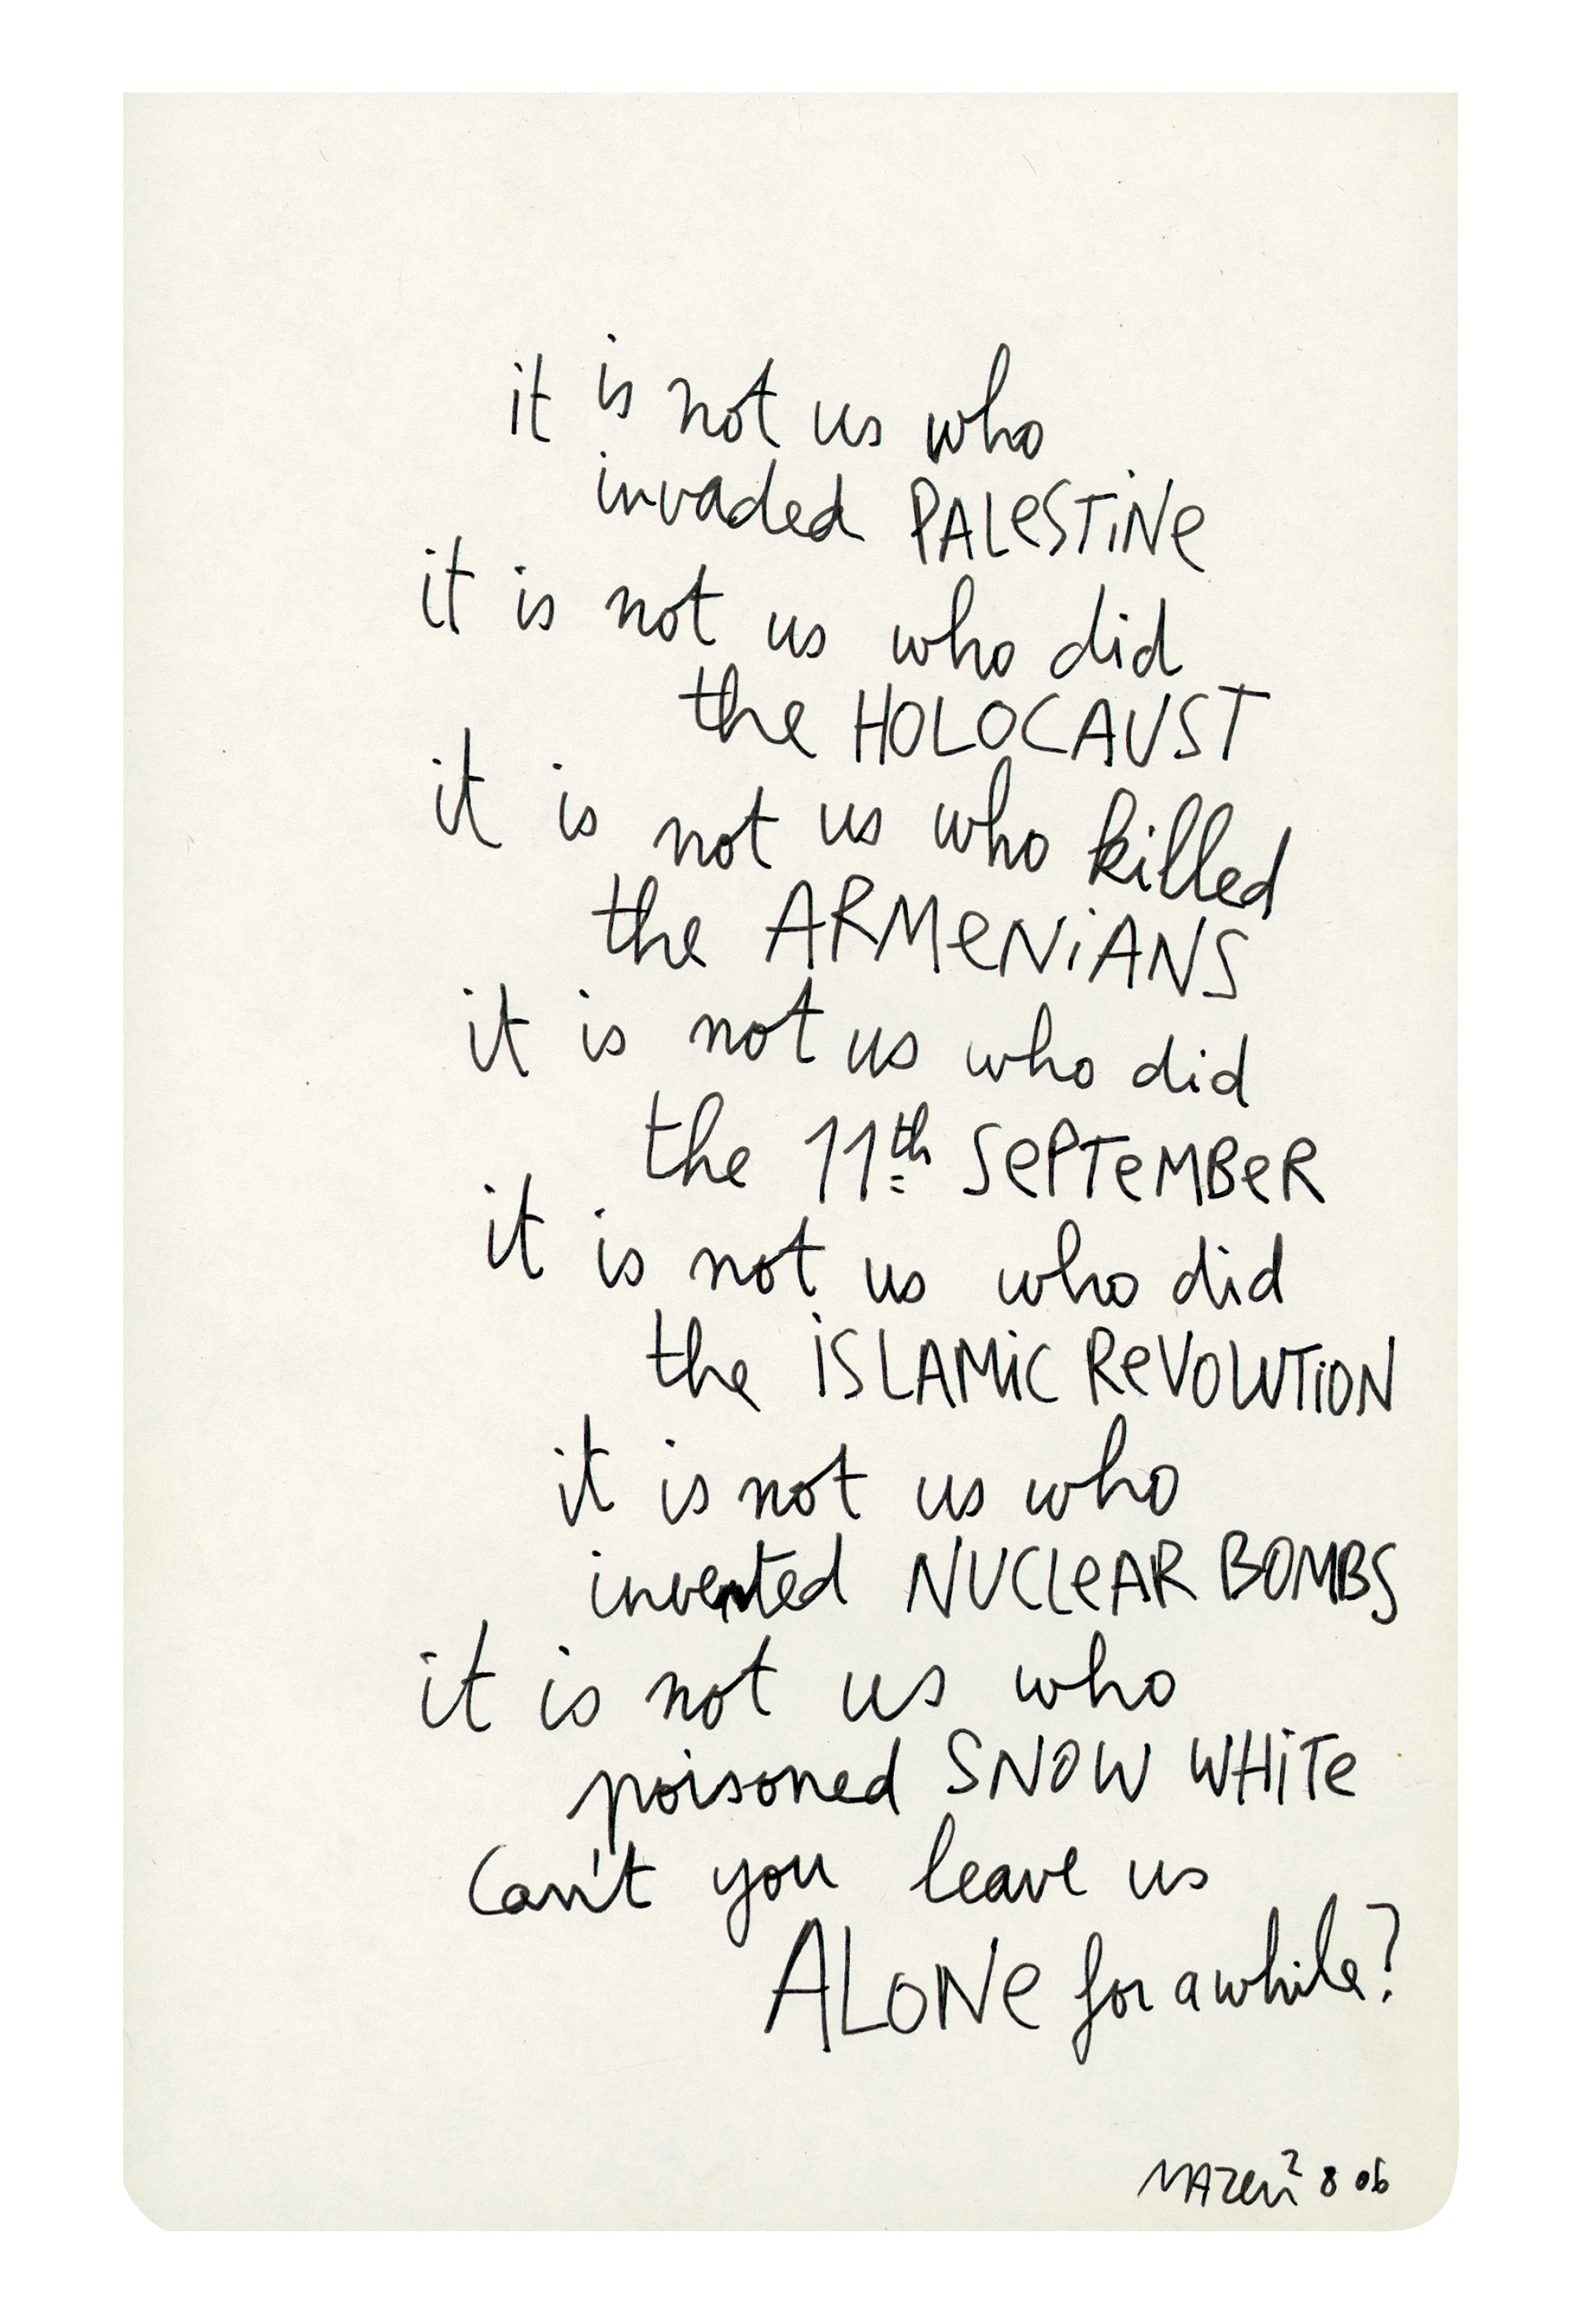 it is not us who
invaded PALeSTiNe
it is not us who did
the HOLOCAUST
it is not us who killed
the ARMeNiANS
it is not us who did
the 11th SePTeMBeR
it is not us who did
the iSLAMiC ReVOLUTiON
it is not us who
invented NUCLeAR BOMBS
it is not us who
poisoned SNOW WHiTe
Can't you leave us
ALONe for a while?
MAZen 2 8 06